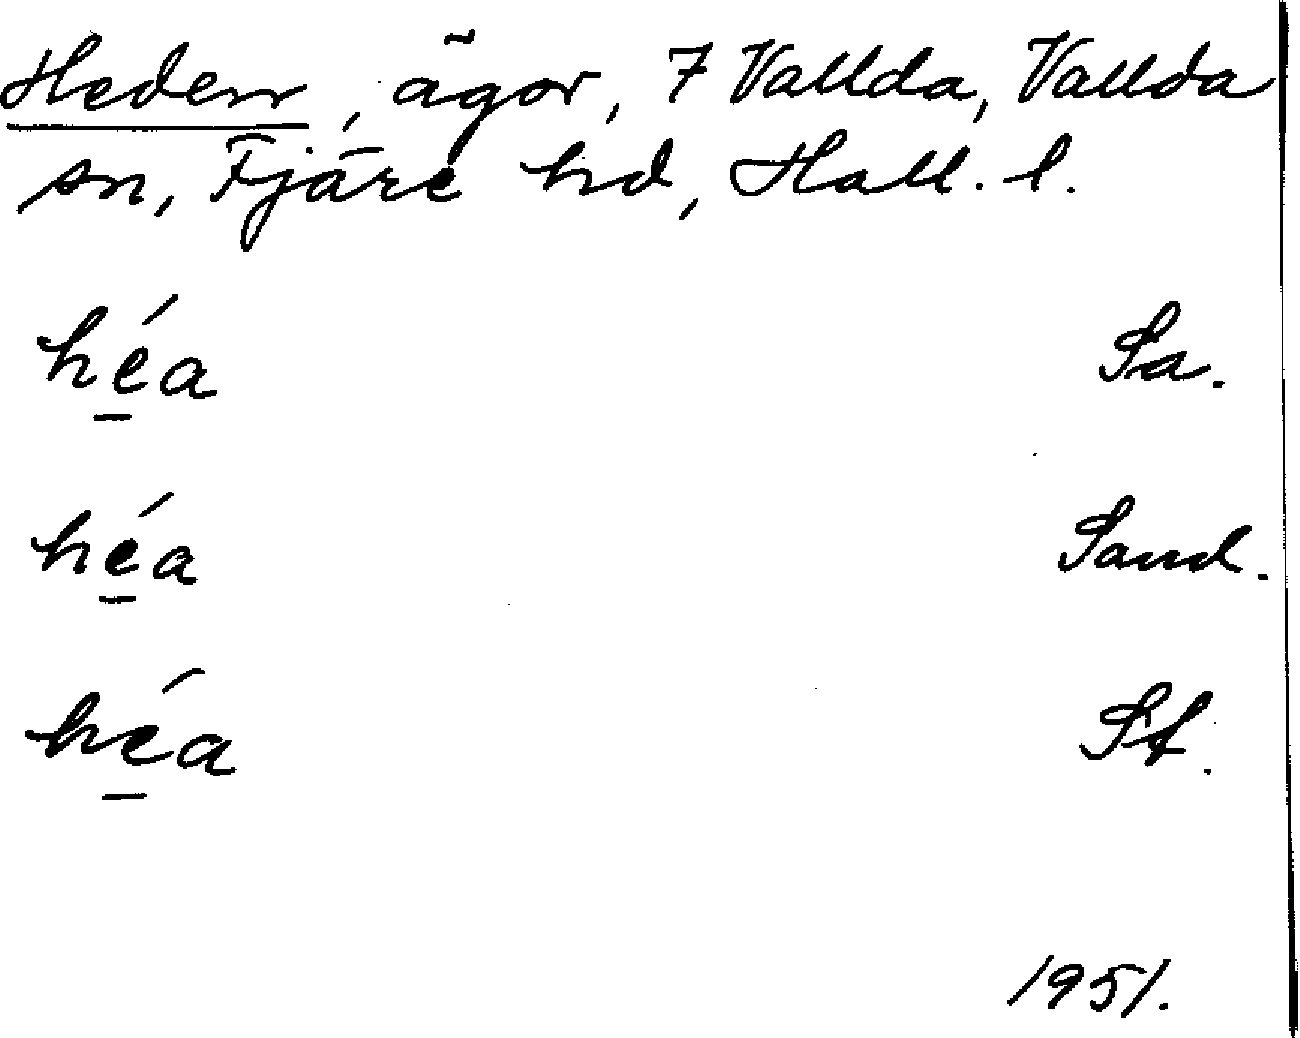 Heden, ägor, 7 Vallda, Vallda
sn, Fjäre hd, Hall. l.
hé̲a Sa.
hé̲a Sand.
hé̲a St.
1951.